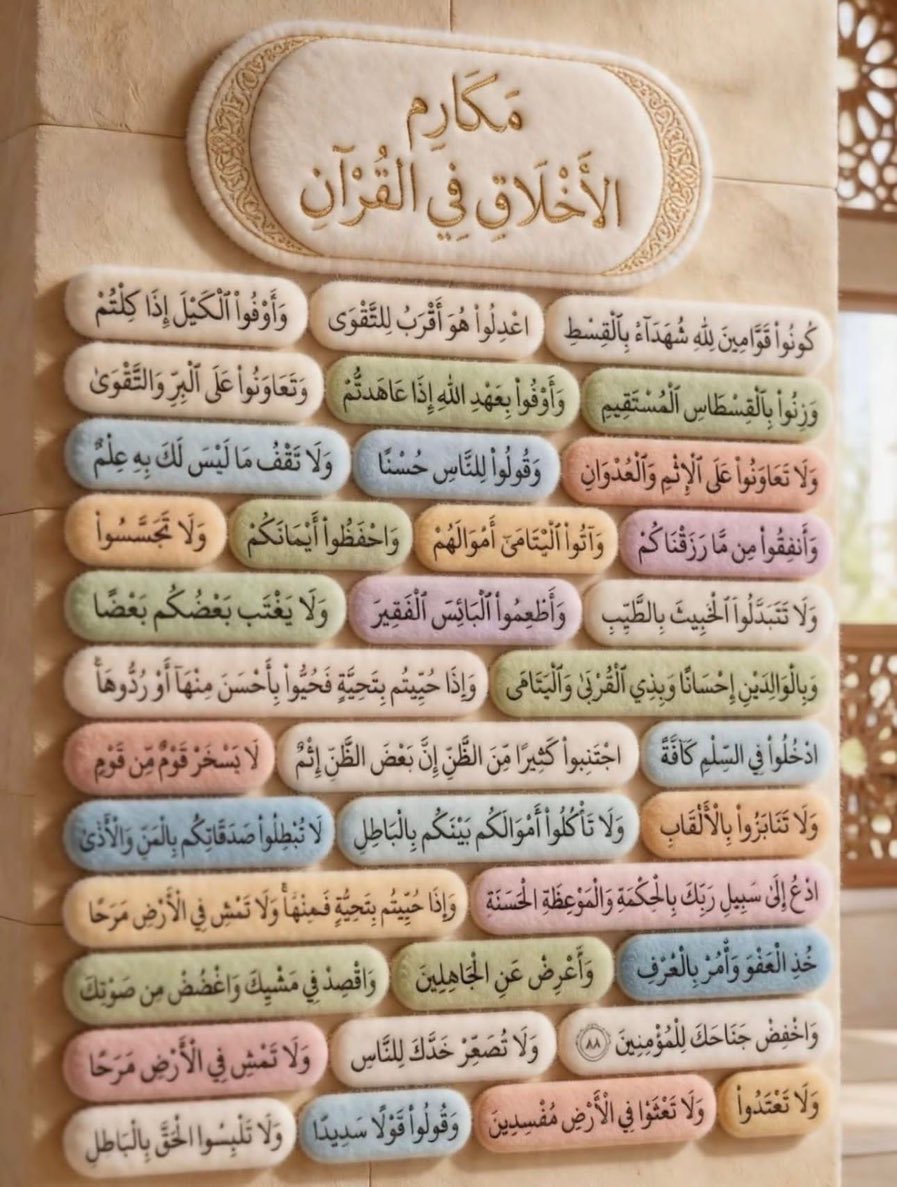 مَكَارِم
الأَخْلَاقِ فِي القُرْآنِ
كُونُواْ قَوَّامِينَ لِلَّهِ شُهَدَآءَ بِالْقِسْطِ
اعْدِلُواْ هُوَ أَقْرَبُ لِلتَّقْوَى
وَأَوْفُواْ الْكَيْلَ إِذَا كِلْتُمْ
وَزِنُواْ بِالْقِسْطَاسِ الْمُسْتَقِيمِ
وَأَوْفُواْ بِعَهْدِ اللهِ إِذَا عَاهَدتُّمْ
وَتَعَاوَنُواْ عَلَى الْبِرِّ وَالتَّقْوَىٰ
وَلَا تَعَاوَنُواْ عَلَى الْإِثْمِ وَالْعُدْوَانِ
وَقُولُواْ لِلنَّاسِ حُسْنًا
وَلَا تَقْفُ مَا لَيْسَ لَكَ بِهِ عِلْمٌ
وَأَنفِقُواْ مِن مَّا رَزَقْنَاكُمْ
وَآتُواْ الْيَتَامَىٰ أَمْوَالَهُمْ
وَاحْفَظُواْ أَيْمَانَكُمْ
وَلَا تَجَسَّسُواْ
وَلَا تَتَبَدَّلُواْ الْخَبِيثَ بِالطَّيِّبِ
وَأَطْعِمُواْ الْبَائِسَ الْفَقِيرَ
وَلَا يَغْتَب بَعْضُكُم بَعْضًا
وَبِالْوَالِدَيْنِ إِحْسَانًا وَبِذِي الْقُرْبَىٰ وَالْيَتَامَى
وَإِذَا حُيِّيتُم بِتَحِيَّةٍ فَحُيُّواْ بِأَحْسَنَ مِنْهَآ أَوْ رُدُّوهَا
ادْخُلُواْ فِي السِّلْمِ كَافَّةً
اجْتَنِبواْ كَثِيرًا مِّنَ الظَّنِّ إِنَّ بَعْضَ الظَّنِّ إِثْمٌ
لَا يَسْخَرْ قَوْمٌ مِّن قَوْمٍ
وَلَا تَنَابَزُواْ بِالْأَلْقَابِ
وَلَا تَأْكُلُواْ أَمْوَالَكُم بَيْنَكُم بِالْبَاطِلِ
لَا تُبْطِلُواْ صَدَقَاتِكُم بِالْمَنِّ وَالْأَذَىٰ
ادْعُ إِلَىٰ سَبِيلِ رَبِّكَ بِالْحِكْمَةِ وَالْمَوْعِظَةِ الْحَسَنَةِ
وَإِذَا حُيِّيتُم بِتَحِيَّةٍ فَمِنْهَا وَلَا تَمْشِ فِي الْأَرْضِ مَرَحًا
خُذِ الْعَفْوَ وَأْمُرْ بِالْعُرْفِ
وَأَعْرِضْ عَنِ الْجَاهِلِينَ
وَاقْصِدْ فِي مَشْيِكَ وَاغْضُضْ مِن صَوْتِكَ
وَاخْفِضْ جَنَاحَكَ لِلْمُؤْمِنِينَ ٨٨
وَلَا تُصَعِّرْ خَدَّكَ لِلنَّاسِ
وَلَا تَمْشِ فِي الْأَرْضِ مَرَحًا
وَلَا تَعْتَدُواْ
وَلَا تَعْثَوْا فِي الْأَرْضِ مُفْسِدِينَ
وَقُولُواْ قَوْلًا سَدِيدًا
وَلَا تَلْبِسُوا الْحَقَّ بِالْبَاطِلِ